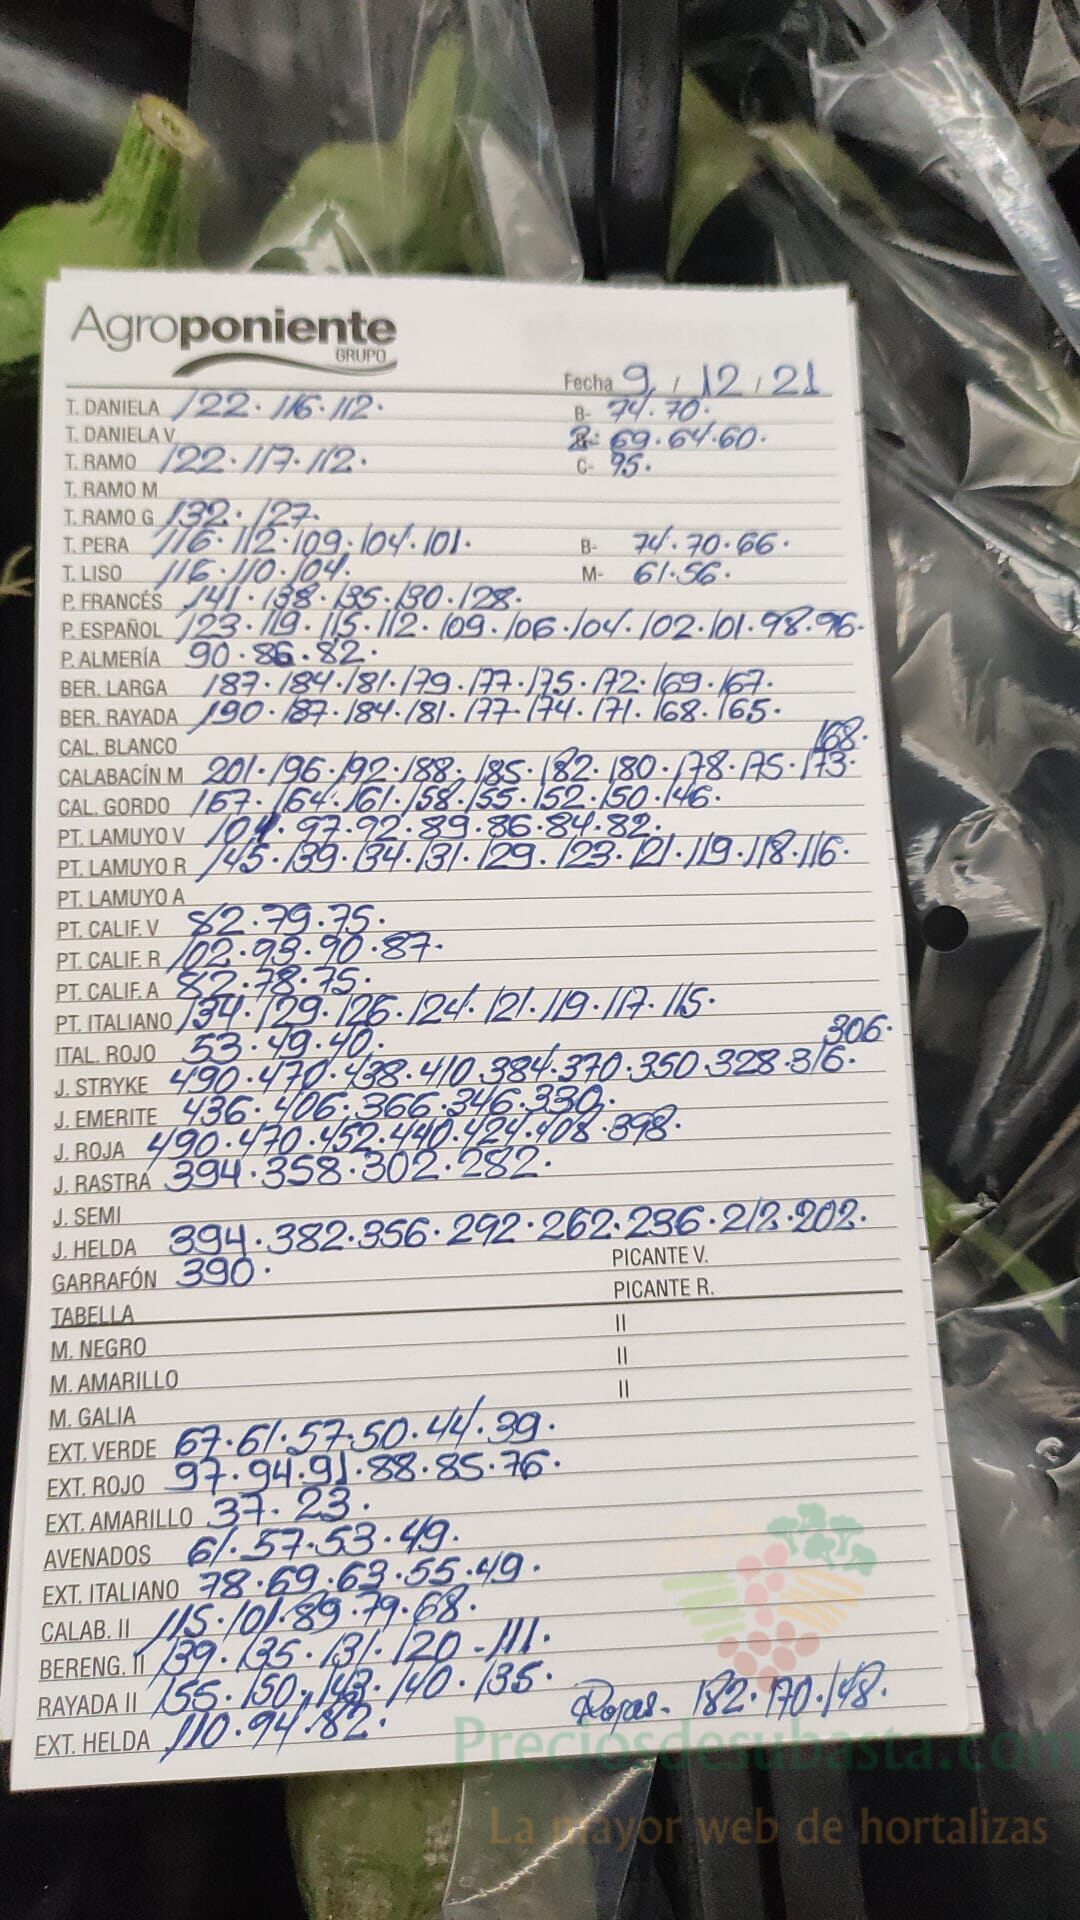 Agroponiente
GRUPO
Fecha 9 / 12 / 21
T. DANIELA 122. 116. 112. B- 74. 70.
T. DANIELA V 2- 69. 64. 60.
T. RAMO 122. 117. 112. C- 95.
T. RAMO M
T. RAMO G 132. 127.
T. PERA 116. 112. 109. 104. 101. B- 74. 70. 66.
T. LISO 116. 110. 104. M- 61. 56.
P. FRANCÉS 141. 138. 135. 130. 128.
P. ESPAÑOL 123. 119. 115. 112. 109. 106. 104. 102. 101. 98. 96.
P. ALMERÍA 90. 86. 82.
BER. LARGA 187. 184. 181. 179. 177. 175. 172. 169. 167.
BER. RAYADA 190. 187. 184. 181. 177. 174. 171. 168. 165.
CAL. BLANCO 168.
CALABACÍN M 201. 196. 192. 188. 185. 182. 180. 178. 175. 173.
CAL. GORDO 167. 164. 161. 158. 155. 152. 150. 146.
PT. LAMUYO V 101. 97. 92. 89. 86. 84. 82.
PT. LAMUYO R 145. 139. 134. 131. 129. 123. 121. 119. 118. 116.
PT. LAMUYO A
PT. CALIF. V 82. 79. 75.
PT. CALIF. R 102. 93. 90. 87.
PT. CALIF. A 82. 78. 75.
PT. ITALIANO 134. 129. 126. 124. 121. 119. 117. 115.
ITAL. ROJO 53. 49. 40. 306.
J. STRYKE 490. 470. 438. 410. 384. 370. 350. 328. 316.
J. EMERITE 436. 406. 366. 346. 330.
J. ROJA 490. 470. 452. 440. 424. 408. 398.
J. RASTRA 394. 358. 302. 282.
J. SEMI
J. HELDA 394. 382. 356. 292. 262. 236. 212. 202.
GARRAFÓN 390. PICANTE V.
TABELLA PICANTE R.
M. NEGRO II
M. AMARILLO II
M. GALIA II
EXT. VERDE 67. 61. 57. 50. 44. 39.
EXT. ROJO 97. 94. 91. 88. 85. 76.
EXT. AMARILLO 37. 23.
AVENADOS 61. 57. 53. 49.
EXT. ITALIANO 78. 69. 63. 55. 49.
CALAB. II 115. 101. 89. 79. 68.
BERENG. II 139. 135. 131. 120 - 111.
RAYADA II 155. 150. 143. 140. 135. Rojas- 182. 170. 148.
EXT. HELDA 110. 94. 82.
Preciosdesubasta.com
La mayor web de hortalizas